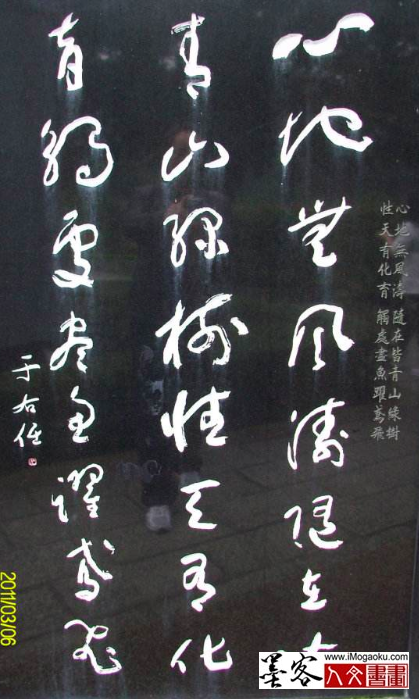 心地無風濤隨在皆
青山綠樹性天有化
育觸處盡魚躍鳶飛
于右任
心地無風濤 隨在皆青山綠樹
性天有化育 觸處盡魚躍鳶飛
2011/03/06
墨客
www.iMogaoku.com